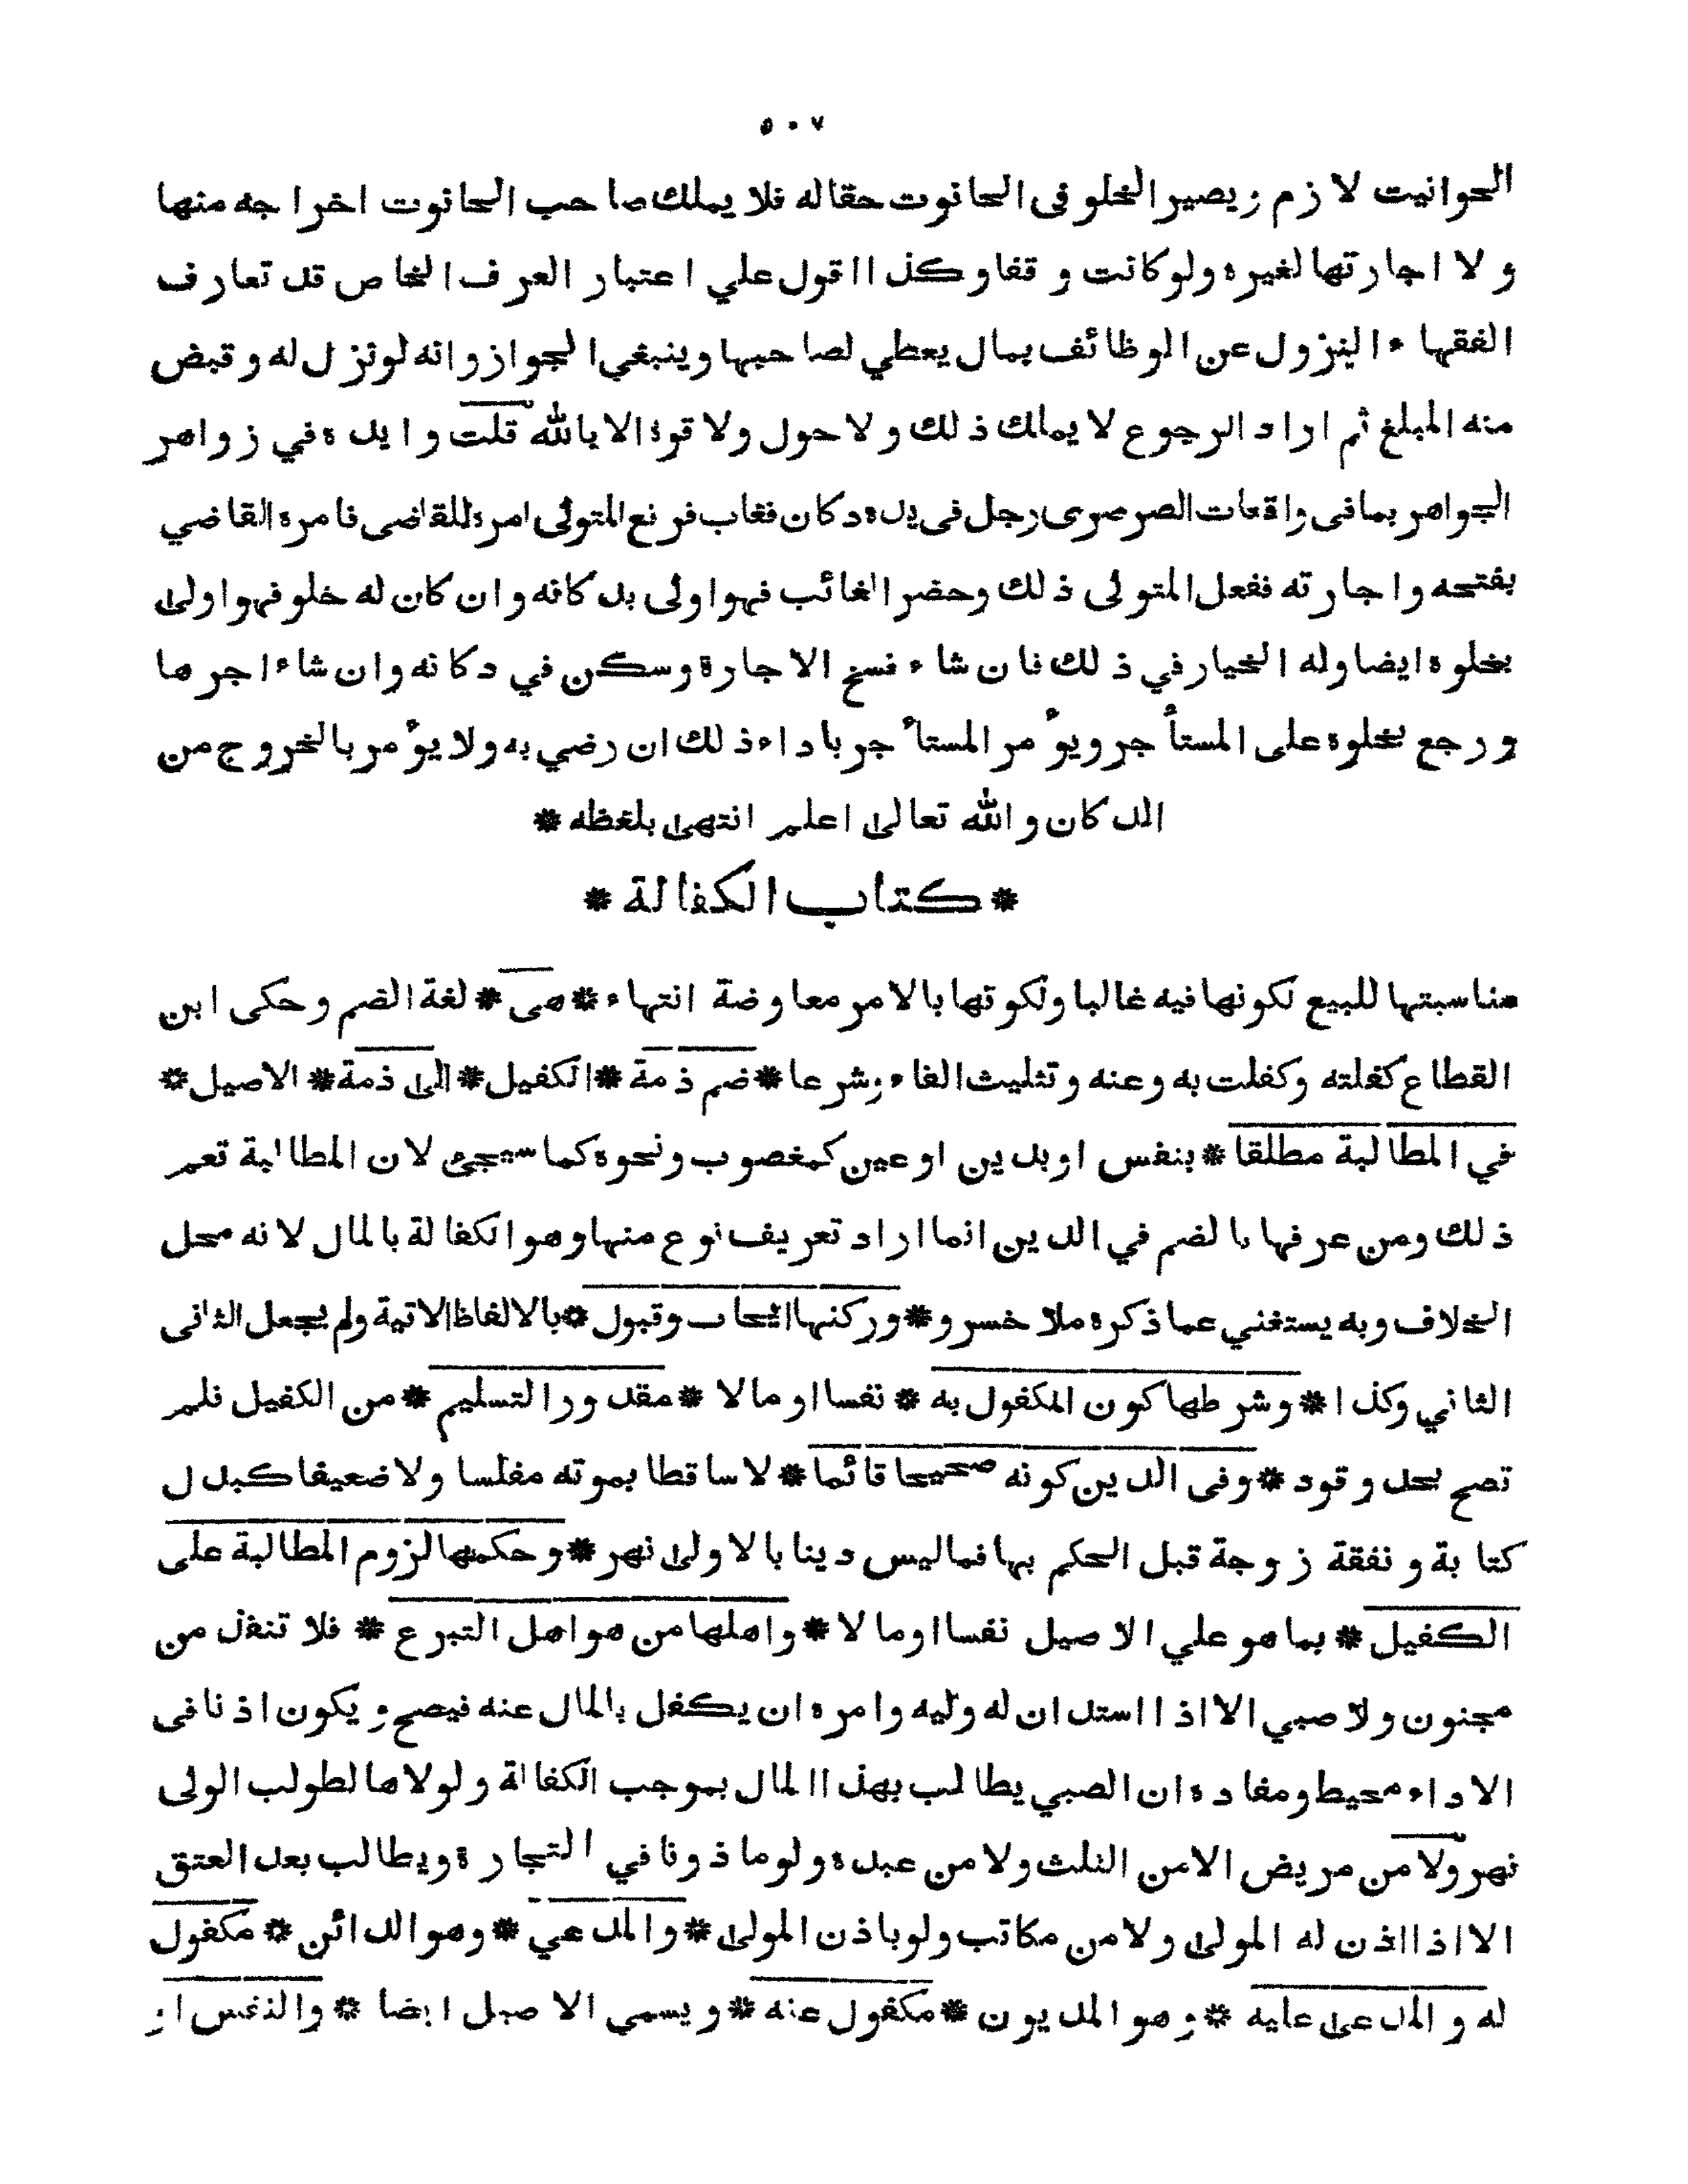 ٥٠٧
الحوانيت لازم ويصير الخلو فى الحانوت حقاله فلا يملك صاحب الحانوت اخراجه منها
ولا اجارتها لغيره ولو كانت وقفا وكذا اقول علي اعتبار العرف الخاص قد تعارف
الفقهاء النزول عن الوظائف بمال يعطي لصاحبها وينبغي الجواز وانه لو نزل له وقبض
منه المبلغ ثم اراد الرجوع لا يملك ذلك ولا حول ولا قوة الا بالله قلت وايده في زواهر
الجواهر بما فى واقعات الصرصرى رجل فى يده دكان فغاب فرفع المتولى امره للقاضى فامره القاضي
بفتحه واجارته ففعل المتولى ذلك وحضر الغائب فهو اولى بدكانه وان كان له خلو فهو اولى
بخلوه ايضا وله الخيار في ذلك فان شاء فسخ الاجارة وسكن في دكانه وان شاء اجرها
ورجع بخلوه على المستأجر ويؤمر المستأجر باداء ذلك ان رضي به ولا يؤمر بالخروج من
الدكان والله تعالى اعلم انتهى بلفظه *
* كتاب الكفالة *
مناسبتها للبيع لكونها فيه غالبا ولكوتها بالامر معاوضة انتهاء * هى * لغة الضم وحكى ابن
القطاع كفلته وكفلت به وعنه وتثليث الفاء وشرعا * ضم ذمة * الكفيل * الى ذمة * الاصيل *
في المطالبة مطلقا * بنفس او بدين او عين كمغصوب ونحوه كما سيجئ لان المطالبة تعم
ذلك ومن عرفها بالضم في الدين انما اراد تعريف نوع منها وهو الكفالة بالمال لانه محل
الخلاف وبه يستغني عما ذكره ملا خسرو * وركنها ايجاب وقبول * بالالفاظ الاتية ولم يجعل الثانى
الثاني وكذا * وشرطها كون المكفول به * نفسا او مالا * مقدور التسليم * من الكفيل فلم
تصح بحد وقود * وفى الدين كونه صحيحا قائما * لا ساقطا بموته مفلسا ولا ضعيفا كبدل
كتابة ونفقة زوجة قبل الحكم بها فما ليس دينا بالاولى نهر * وحكمها لزوم المطالبة على
الكفيل * بما هو علي الاصيل نفسا او مالا * واهلها من هو اهل التبرع * فلا تنفذ من
مجنون ولا صبي الا اذا استدان له وليه وامره ان يكفل بالمال عنه فيصح ويكون اذنا فى
الاداء محيط ومفاده ان الصبي يطالب بهذا المال بموجب الكفالة ولولاها لطولب الولى
نهر ولا من مريض الا من الثلث ولا من عبده ولو ماذونا في التجارة ويطالب بعد العتق
الا اذا اذن له المولى ولا من مكاتب ولو باذن المولى * والمدعي * وهو الدائن * مكفول
له والمدعى عليه * وهو المديون * مكفول عنه * ويسمي الاصيل ايضا * والنفس او